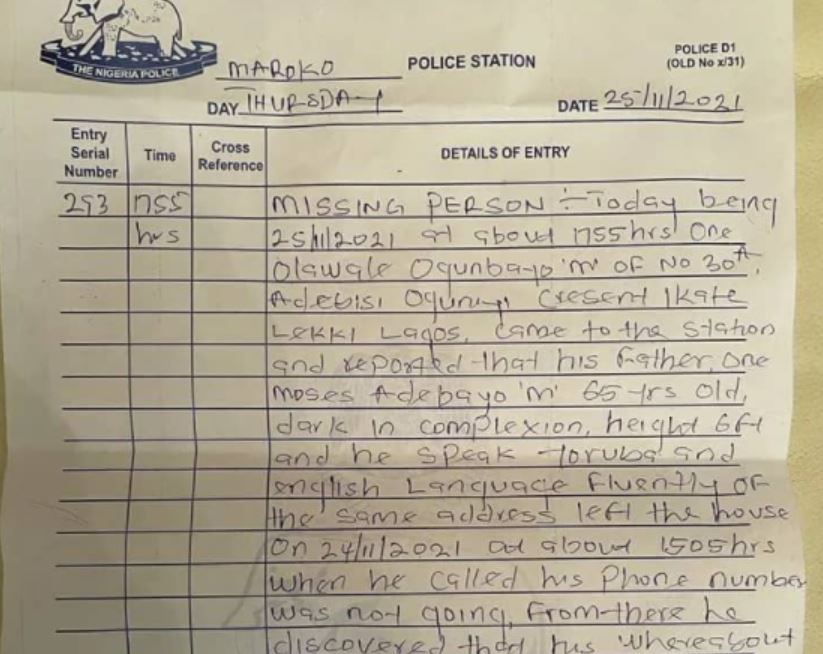 THE NIGERIA POLICE
MAROKO POLICE STATION
POLICE D1
(OLD No x/31)
DAY THURSDAY DATE 25/11/2021
Entry Serial Number Time Cross Reference DETAILS OF ENTRY
293 1755 MISSING PERSON ÷ Today being
hrs 25/11/2021 at about 1755hrs One
Olawale Ogunbayo 'm' OF No 30A,
Adebisi Cresent Ikate
Lekki Lagos, came to the station
and reported that his Father, one
Moses Adebayo 'm' 65 yrs old,
dark in complexion, height 6ft
and he speak Yoruba and
english Language fluently OF
the same address left the house
On 24/11/2021 at about 1505hrs
when he called his Phone number
was not going, From there he
discovered that his whereabout